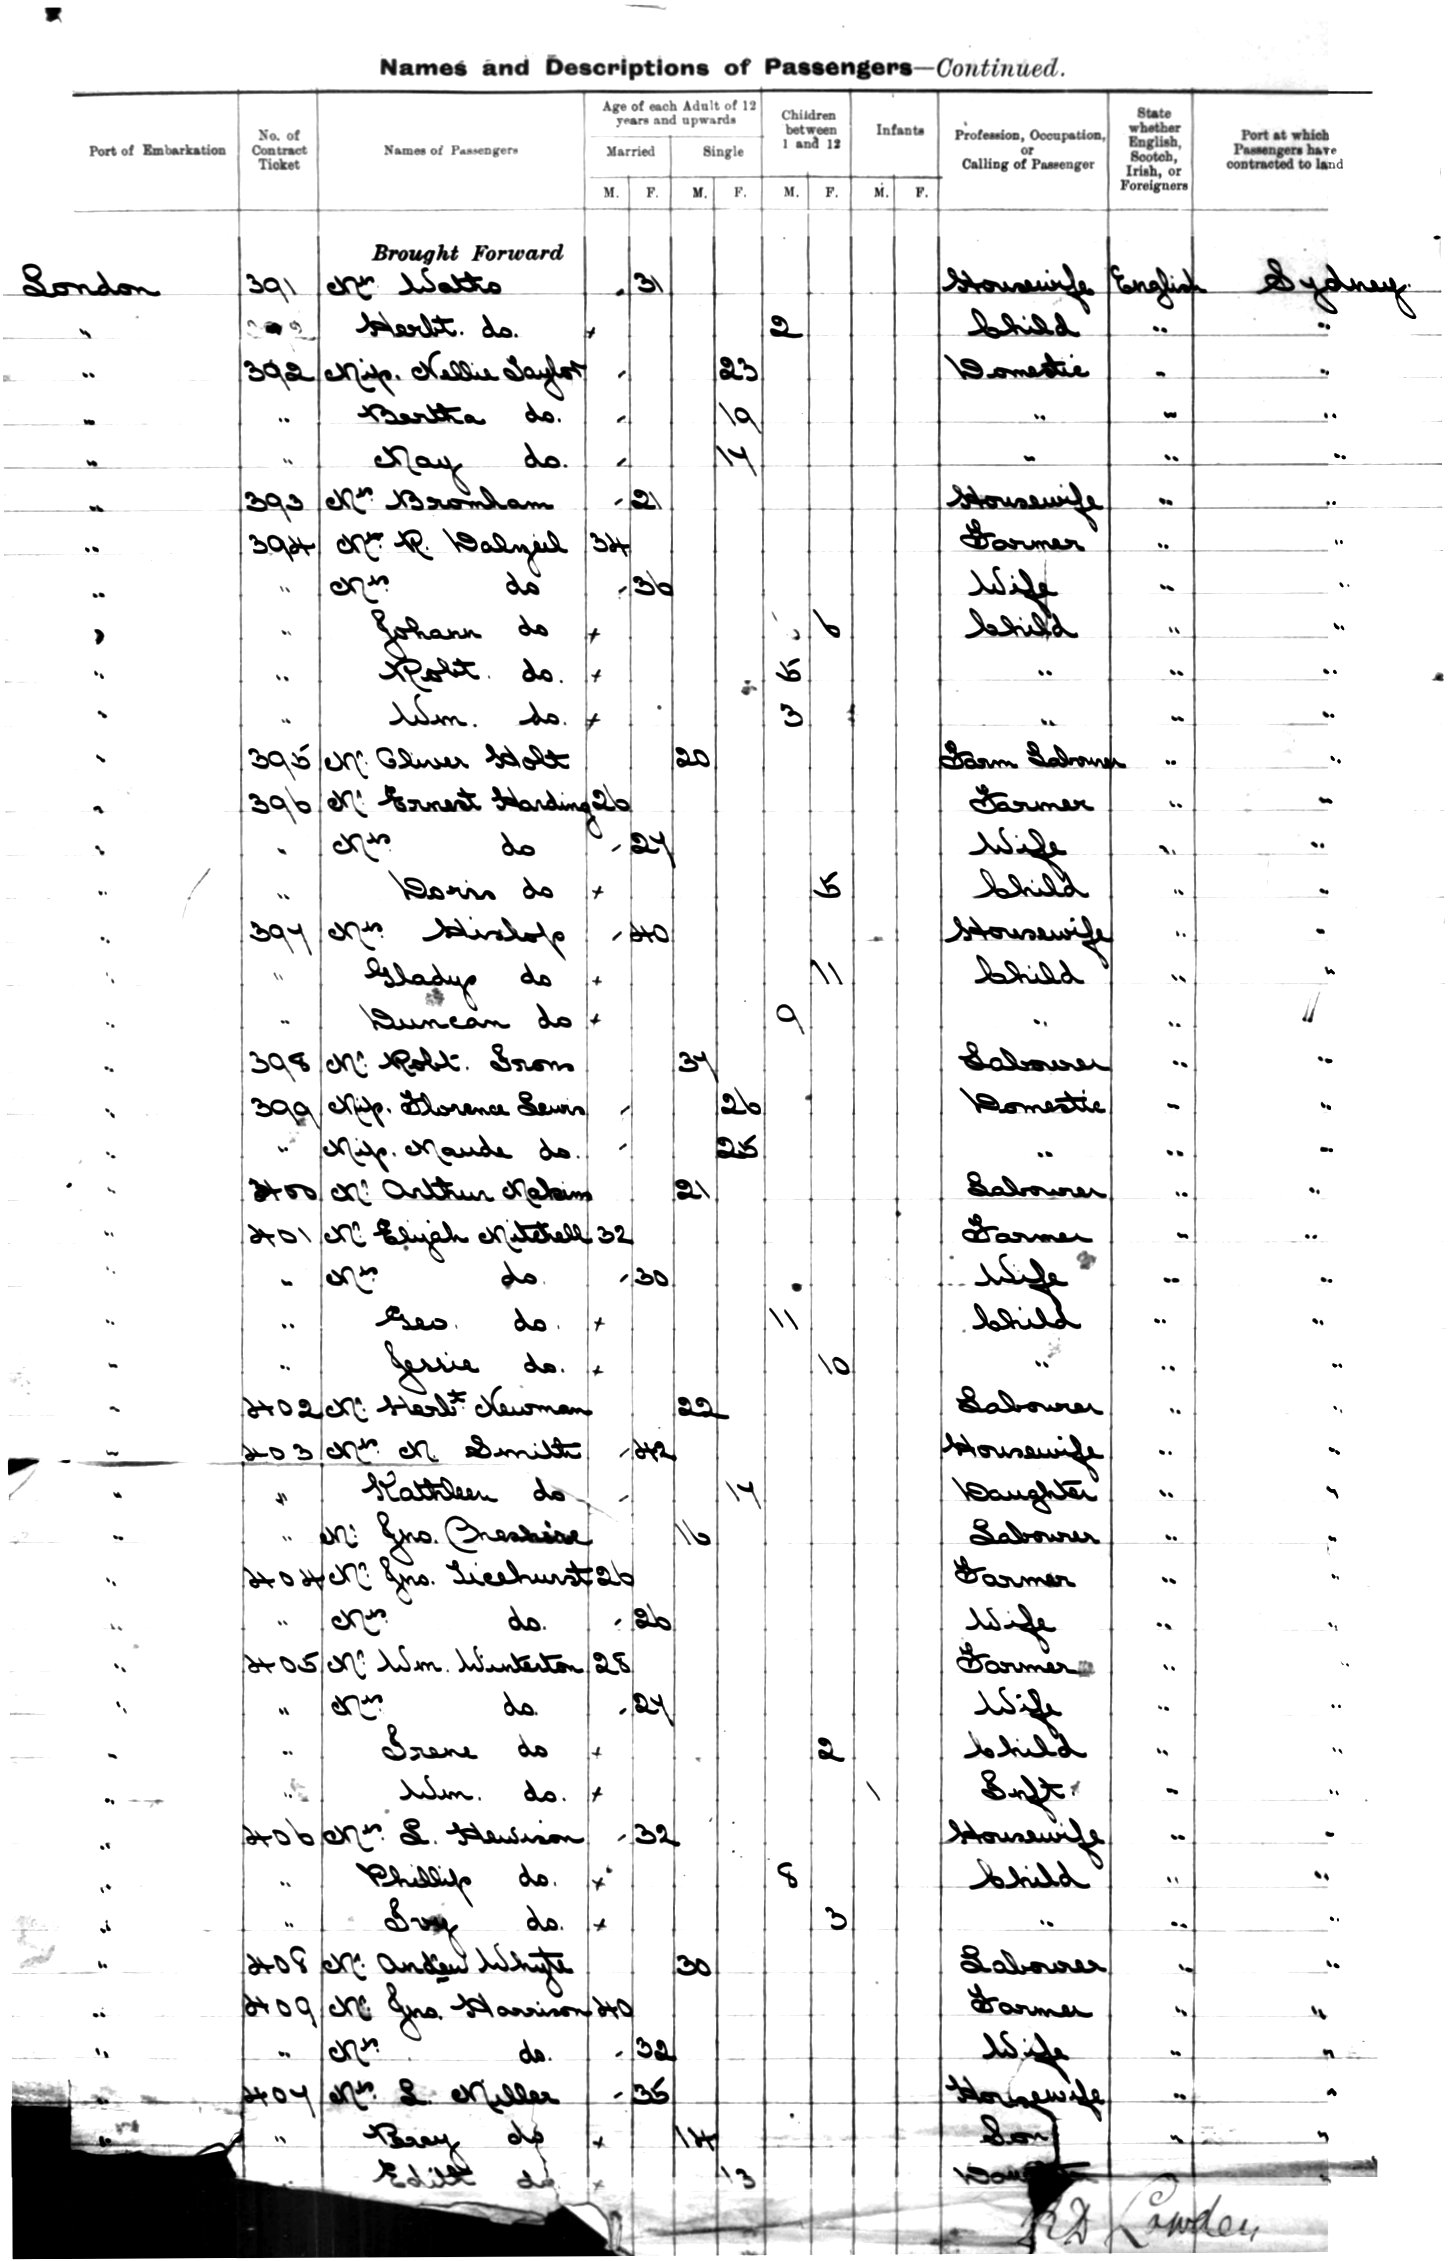 Names and Descriptions of Passengers—Continued.
Port of Embarkation | No. of Contract Ticket | Names of Passengers | Age of each Adult of 12 years and upwards | Children between 1 and 12 | Infants | Profession, Occupation, or Calling of Passenger | State whether English, Scotch, Irish, or Foreigners | Port at which Passengers have contracted to land
Married Single
M. F. M. F. M. F. M. F.
Brought Forward
London 391 Mrs Watts 31 Housewife English Sydney
" Herbt. do. + 2 Child " "
" 392 Miss. Nellie Taylor 23 Domestic " "
" " Bertha do. 19 " " "
" " May do. 17 " " "
" 393 Mrs Bromham 21 Housewife " "
" 394 Mr R. Dalzeil 34 Farmer " "
" " Mrs do 36 Wife " "
" " Johann do + 6 Child " "
" " Robt. do. + 5 " " "
" " Wm. do. + 3 " " "
" 395 Mr Oliver Holt 20 Farm Labourer " "
" 396 Mr Ernest Harding 26 Farmer " "
" " Mrs do 27 Wife " "
" " Doris do + 5 Child " "
" 397 Mrs Hislop 40 Housewife " "
" " Gladys do + 11 Child " "
" " Duncan do + 9 " " "
" 398 Mr Robt. Irons 37 Labourer " "
" 399 Miss. Florence Lewis 26 Domestic " "
" " Miss. Maude do. 25 " " "
" 400 Mr Arthur Makims 21 Labourer " "
" 401 Mr Elijah Mitchell 32 Farmer " "
" " Mrs do. 30 Wife " "
" " Geo. do. + 11 Child " "
" " Jessie do. + 10 " " "
" 402 Mr Herbt Newman 22 Labourer " "
" 403 Mrs M Smith 42 Housewife " "
" " Kathleen do 17 Daughter " "
" " Mr Jno. Cheshire 16 Labourer " "
" 404 Mr Jno. Ticehurst 26 Farmer " "
" " Mrs do. 26 Wife " "
" 405 Mr Wm. Winterton 28 Farmer " "
" " Mrs do. 27 Wife " "
" " Irene do + 2 Child " "
" " Wm. do. + 1 Inft. " "
" 406 Mrs L. Hewison 32 Housewife " "
" " Phillip do. + 8 Child " "
" " Ivy do. + 3 " " "
" 408 Mr Andew Whyte 30 Labourer " "
" 409 Mr Jno. Harrison 40 Farmer " "
" " Mrs do. 32 Wife " "
" 407 Mrs L. Miller 35 Housewife " "
" " do + 14 Son " "
" Edith do + 13 "
Lowden